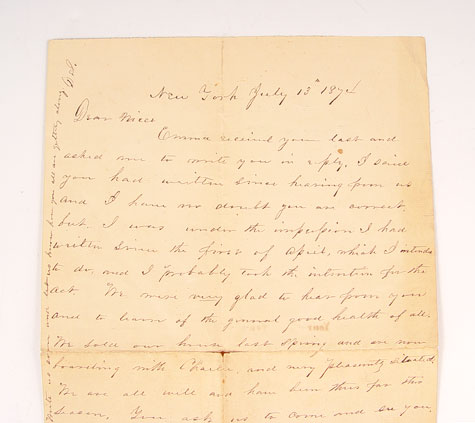 New York July 13th 187
Dear Niece
Emma received your last and
asked me to write you in reply. I said
you had written since hearing from us
and I have no doubt you are correct.
but I was under the impression I had
written since the first of April, which I intended
to do, and I probably took the intention for the
act. We were very glad to hear from you
and to learn of the general good health of all.
We sold our house last Spring and are now
boarding with Charlie, and very pleasantly situated.
We are all well and have been thus far this
Season, You ask us to come and see you,
Write us soon and let us know how you all are getting along